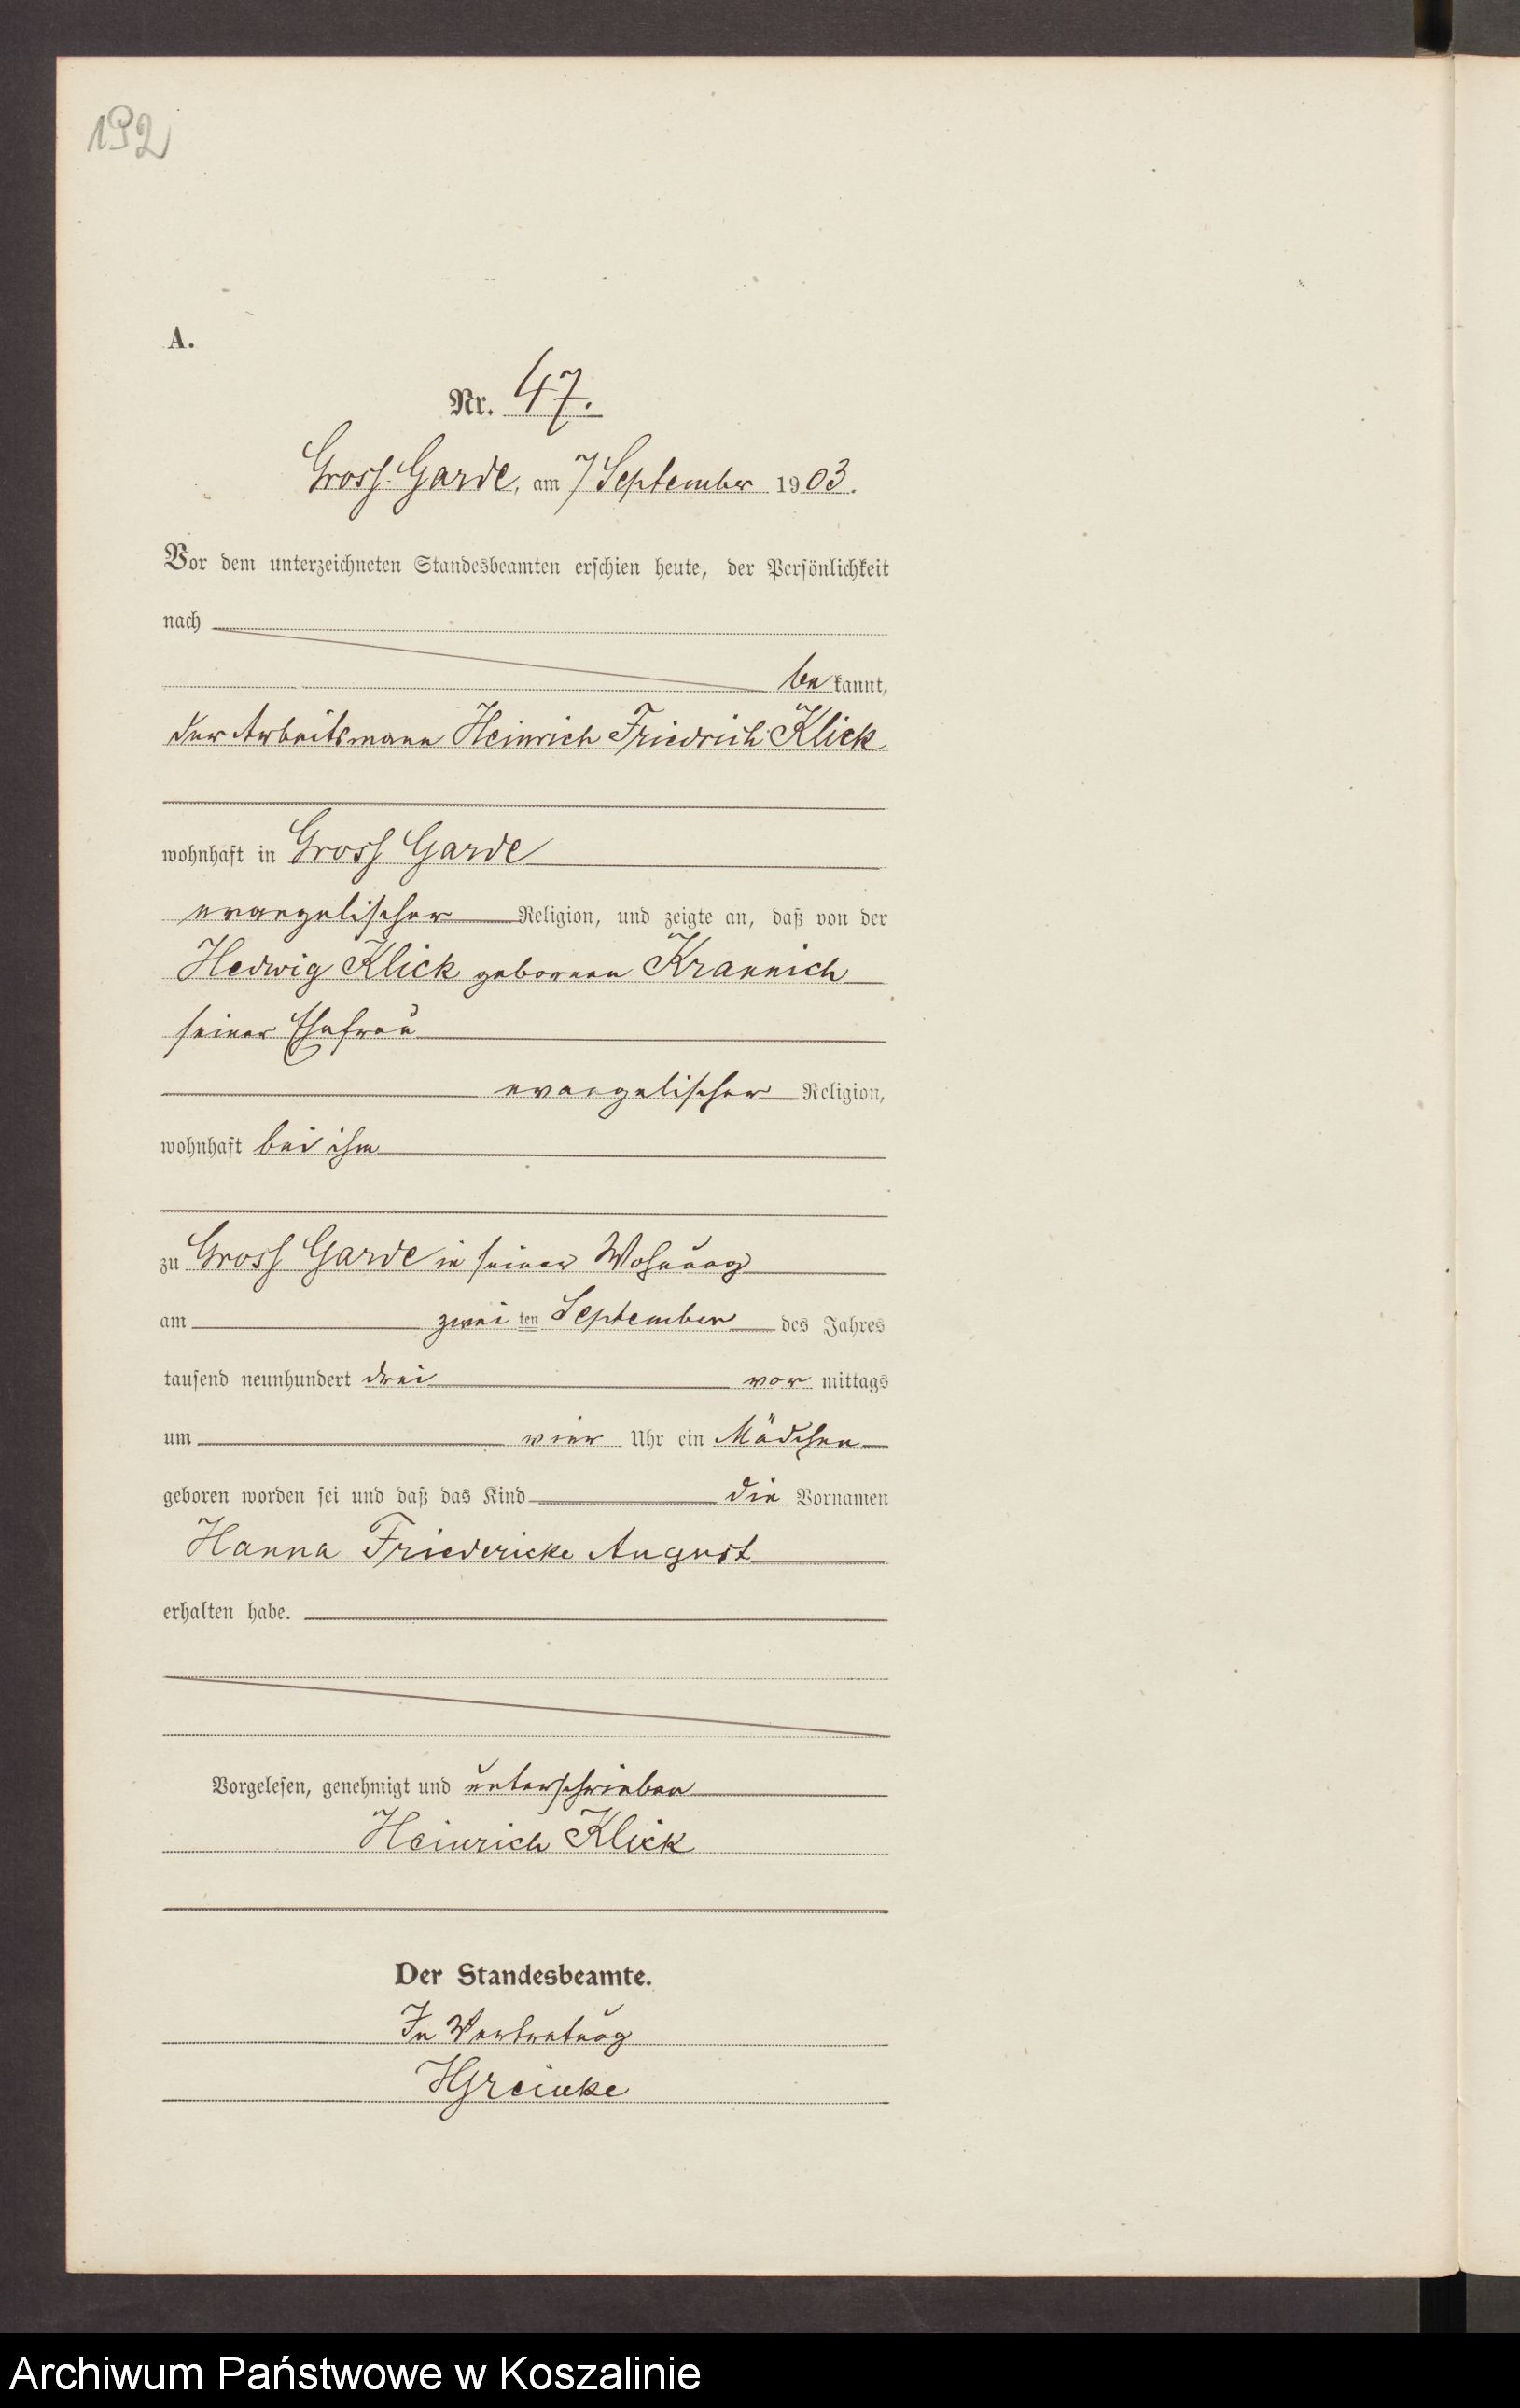 192
A.
Nr. 47.
Gross-Garde, am 7 September 1903.
Vor dem unterzeichneten Standesbeamten erschien heute, der Persönlichkeit
nach
be kannt,
der Arbeitsmann Heinrich Friedrich Klick
wohnhaft in Gross Garde
evangelischer Religion, und zeigte an, daß von der
Hedwig Klick geborenen Krannich
seiner Ehefrau
evangelischer Religion,
wohnhaft bei ihm
zu Gross Garde in seiner Wohnung
am zwei ten September des Jahres
tausend neunhundert drei vor mittags
um vier Uhr ein Mädchen
geboren worden sei und daß das Kind die Vornamen
Hanna Friedericke August
erhalten habe.
Vorgelesen, genehmigt und unterschrieben
Heinrich Klick
Der Standesbeamte.
In Vertretung
HGreinke
Archiwum Państwowe w Koszalinie